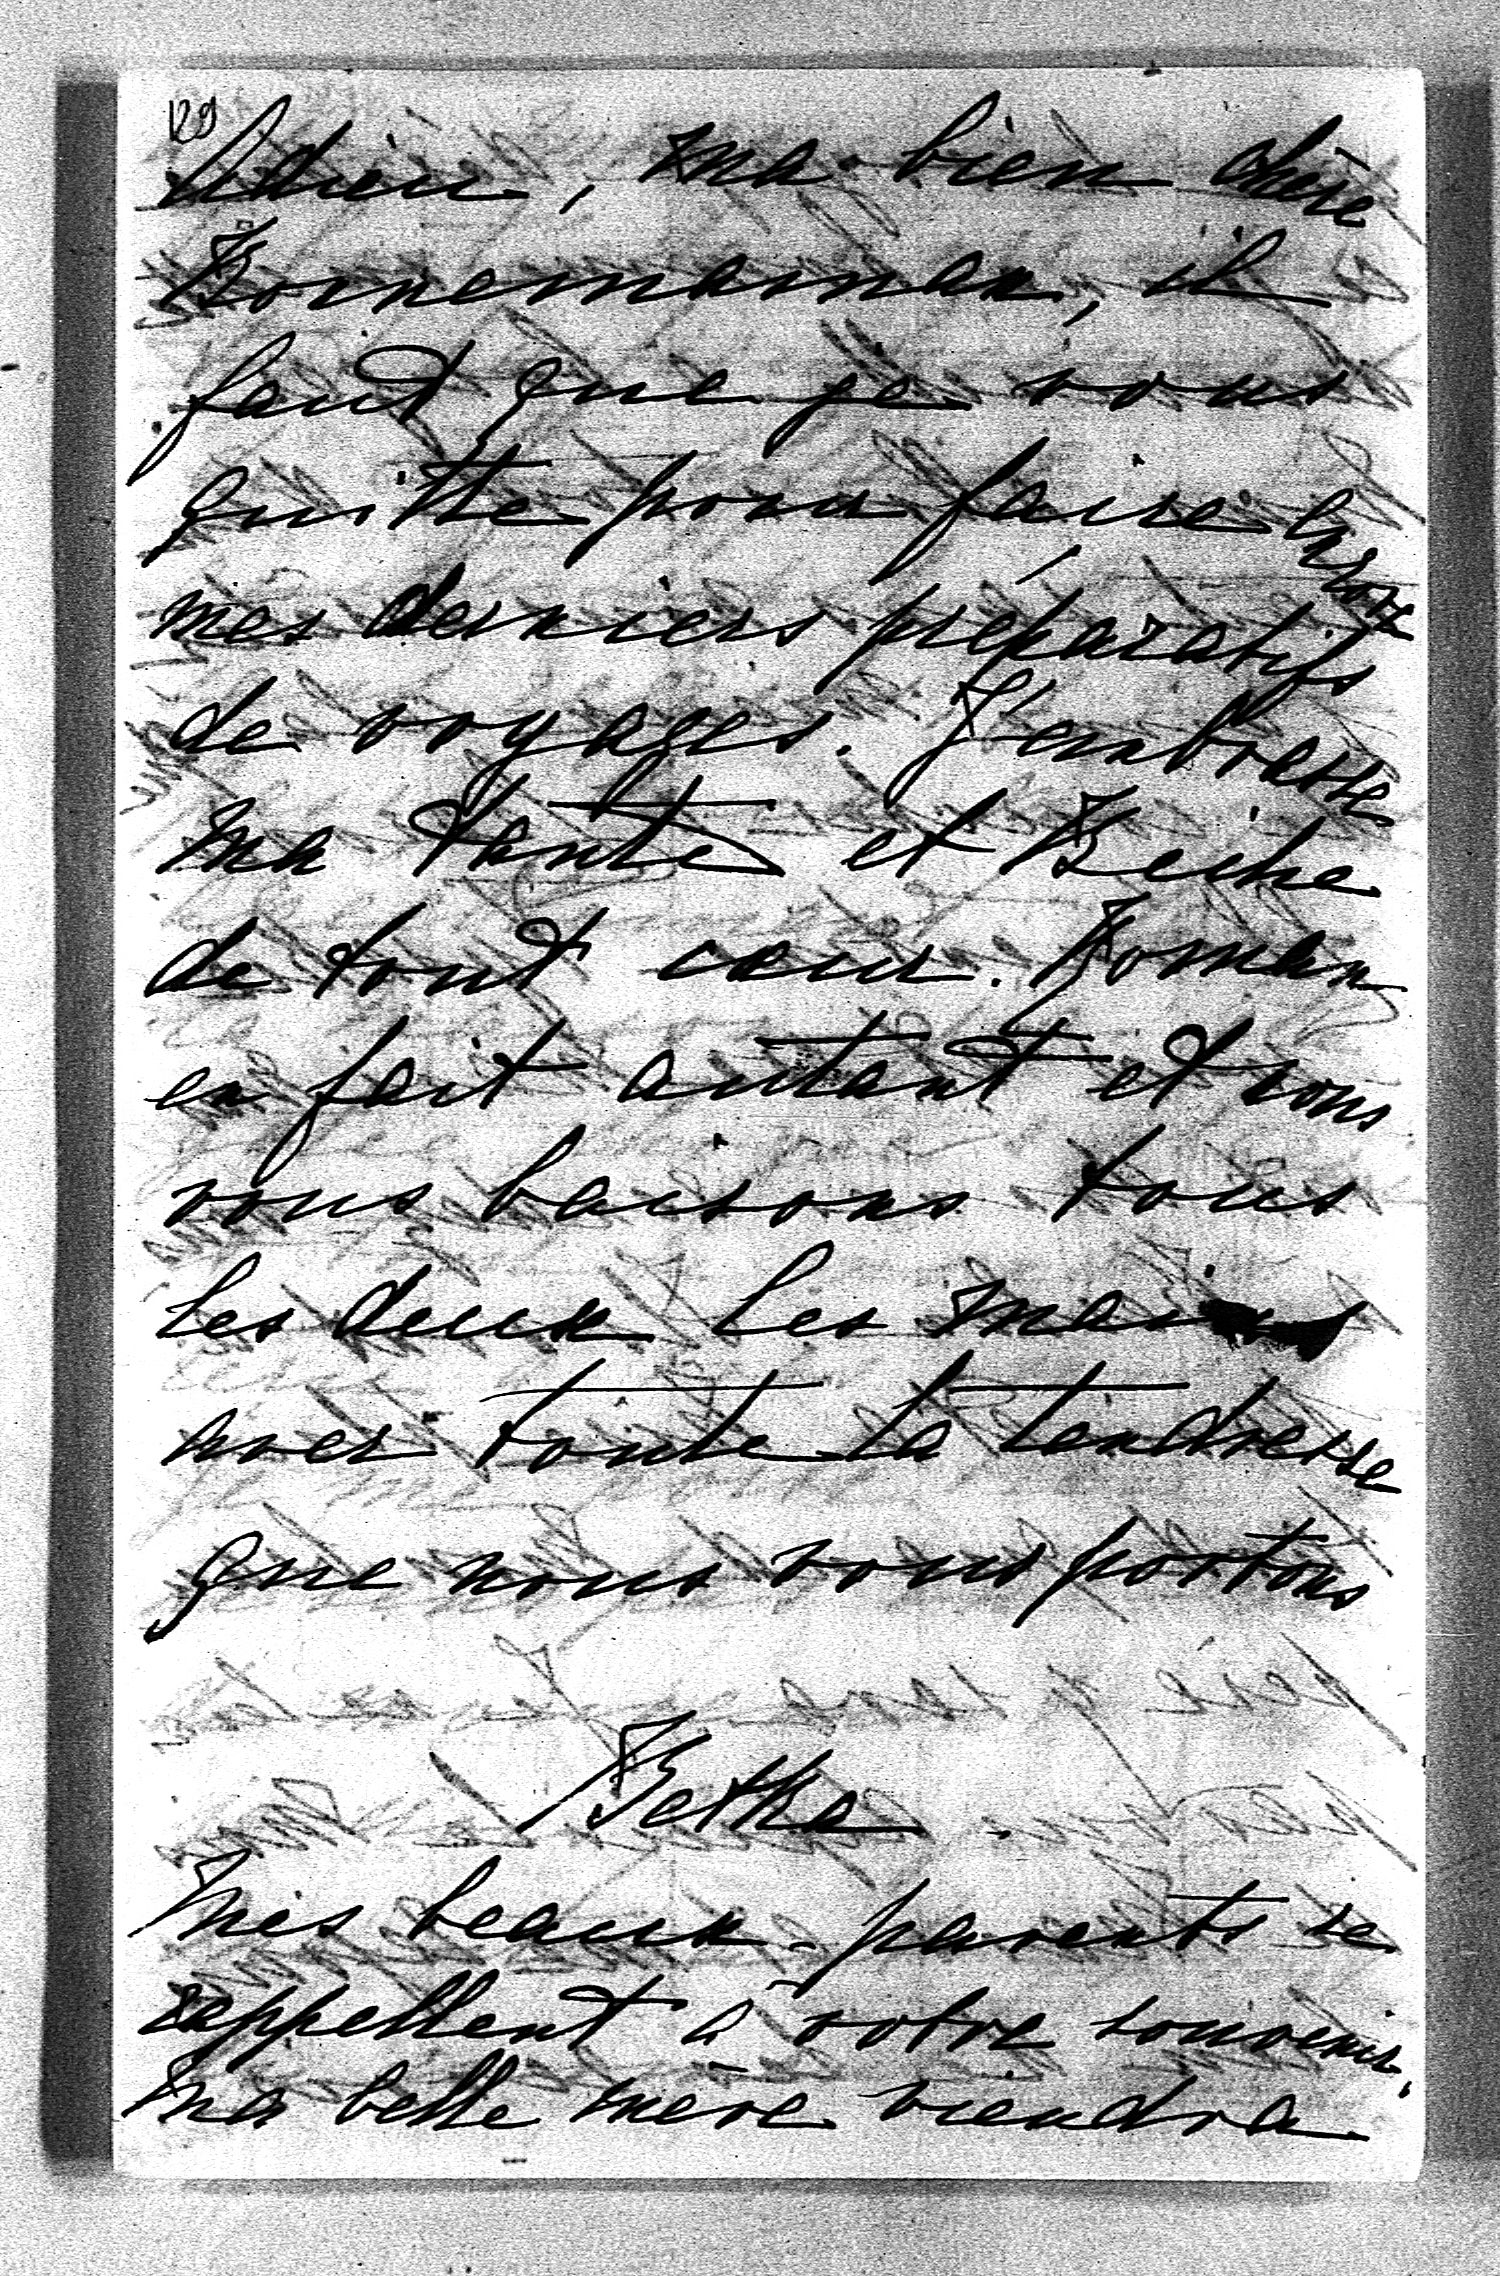 129
Adieu, ma bien chère
Bonnemaman, il
faut que je vous
quitte pour faire encore
mes derniers préparatifs
de voyages. J'embrasse
ma tante et
de tout cœur. Roman
en fait autant et nous
vous baisons tous
les deux les mains
avec toute la tendresse
que nous vous portons
Betka
Mes beaux-parents se
rappellent à votre souvenir.
Ma belle mère viendra